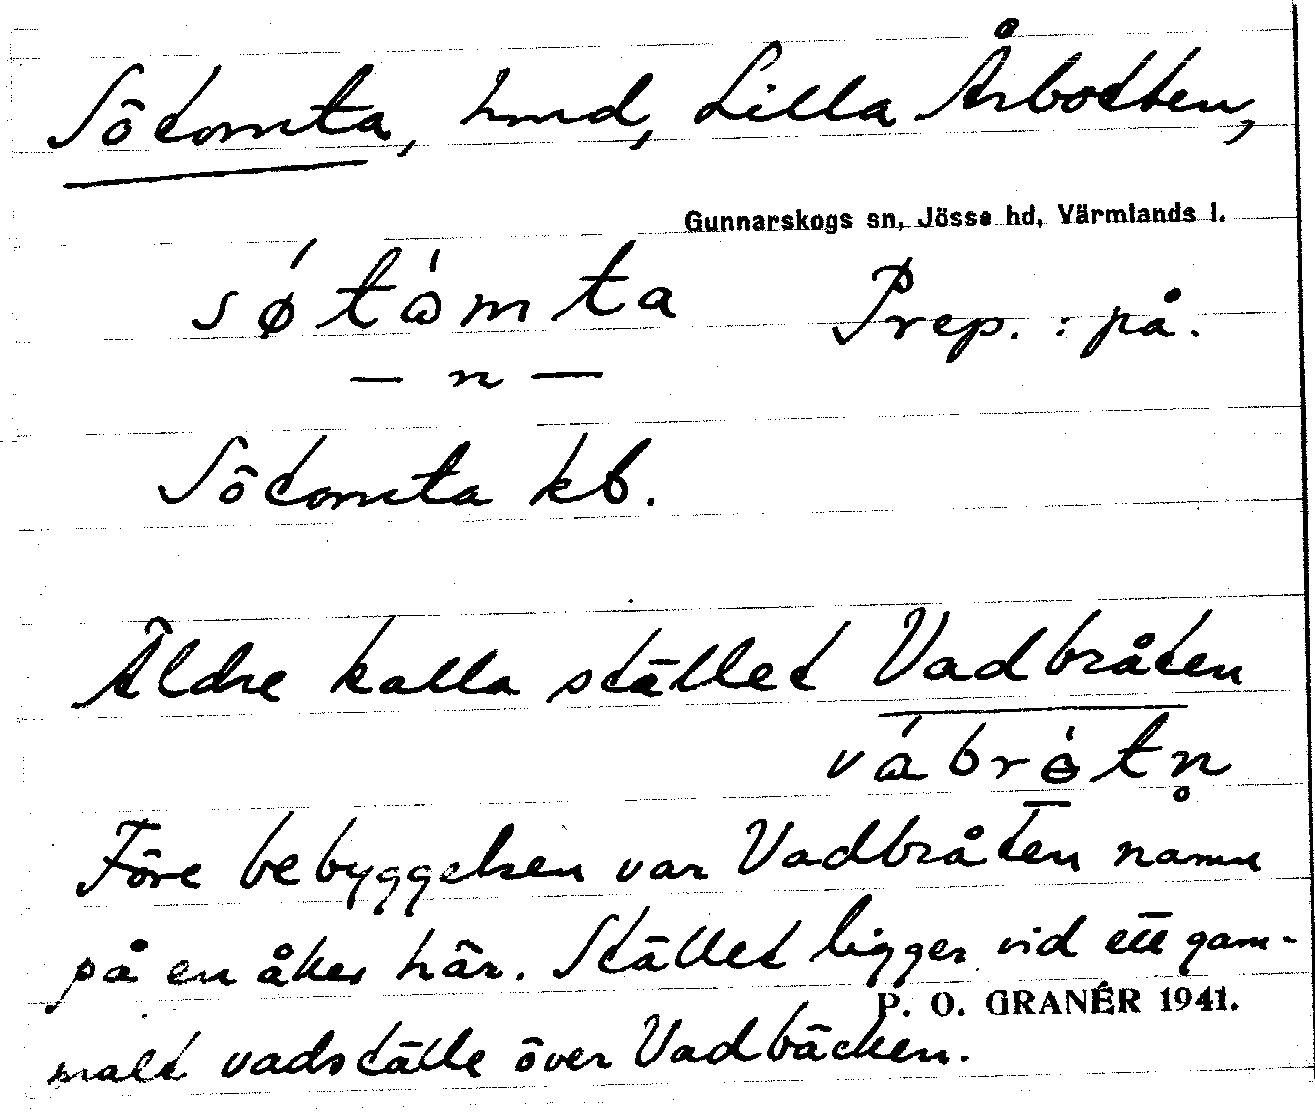 Sötomta, hmd, Lilla Årbotten,
Gunnarskogs sn, Jösse hd, Värmlands l.
sǿtòmta Prep. : på.
— n —
Sötomta kb.
Äldre kalla stället Vadbråten
vábròtn̥
Före bebyggelsen var Vadbråten namn
på en åker här. Stället ligger vid ett gam-
P. O. GRANÉR 1941.
malt vadställe över Vadbäcken.